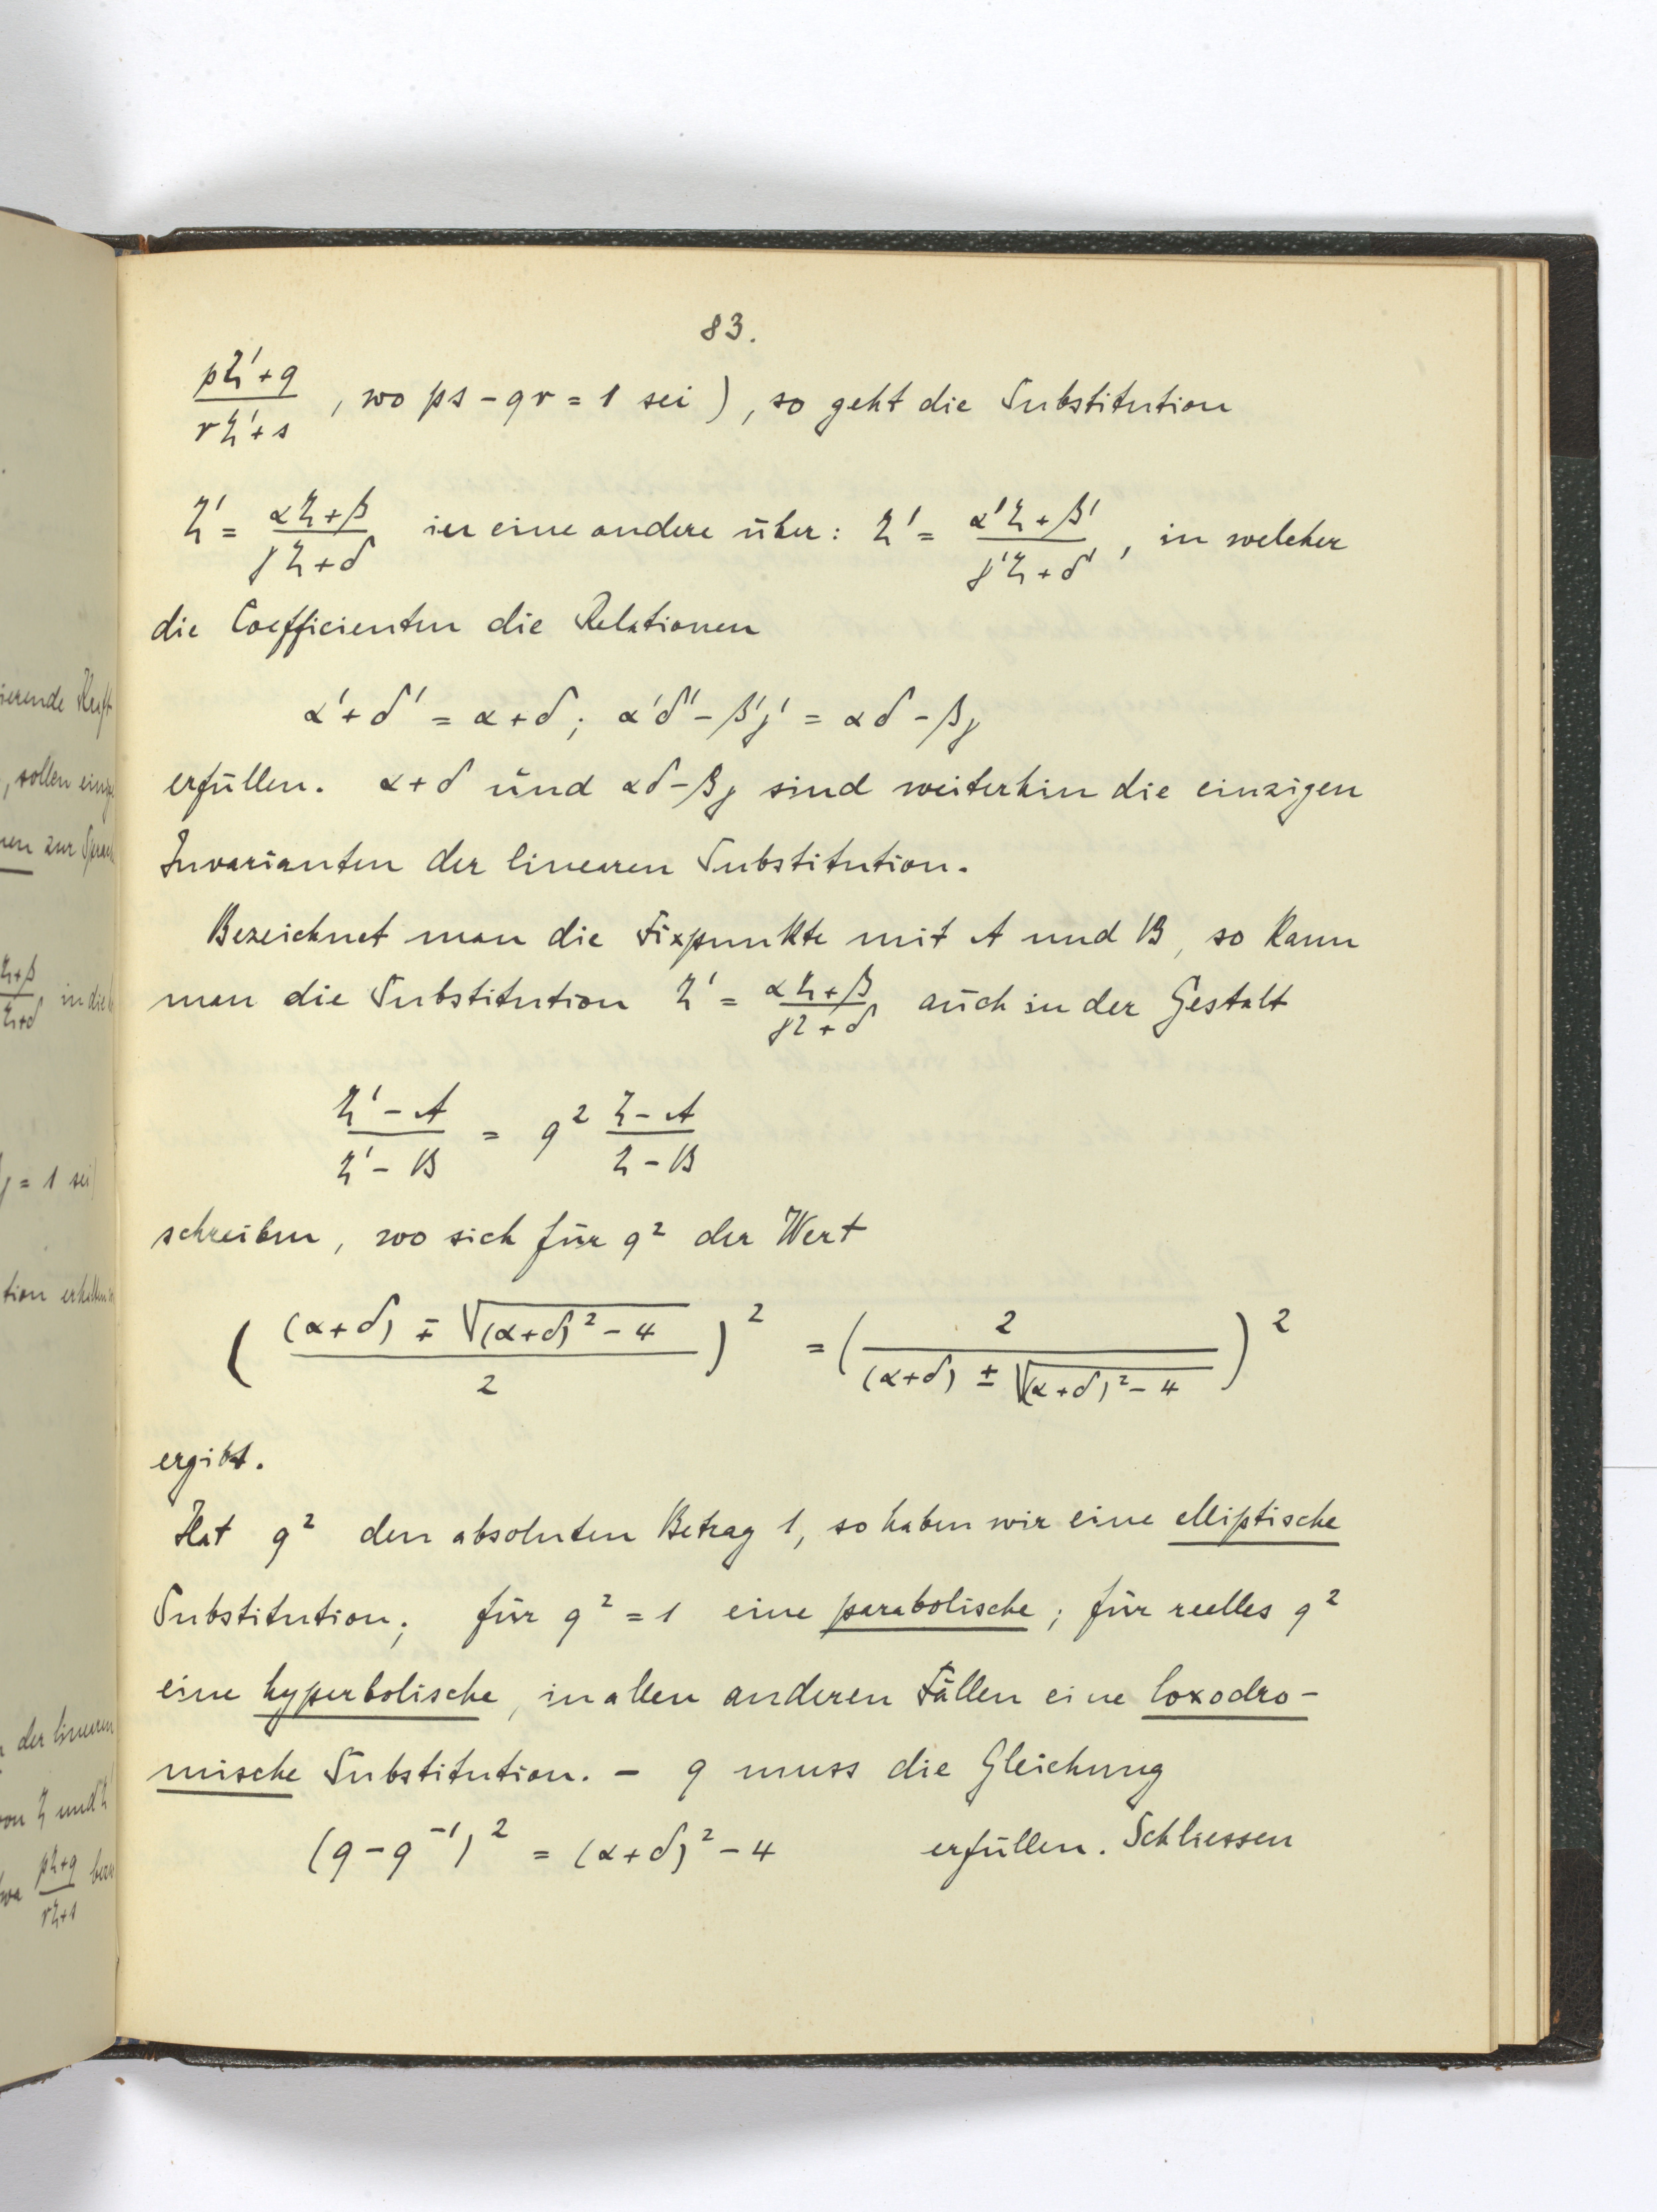 83.
(pζ'+q)/(rζ'+s), wo ps - qr = 1 sei), so geht die Substitution
ζ' = (αζ+β)/(γζ+δ) in eine andere über: ζ' = (α'ζ+β')/(γ'ζ+δ'), in welcher
die Coefficienten die Relationen
α'+δ' = α+δ; α'δ'-β'γ' = αδ-βγ
erfüllen. α+δ und αδ-βγ sind weiterhin die einzigen
Invarianten der linearen Substitution.
Bezeichnet man die Fixpunkte mit A und B, so kann
man die Substitution ζ' = (αζ+β)/(γζ+δ) auch in der Gestalt
(ζ'-A)/(ζ'-B) = q² (ζ-A)/(ζ-B)
schreiben, wo sich für q² der Wert
(((α+δ) ∓ √((α+δ)²-4))/2)² = (2/((α+δ) ± √((α+δ)²-4)))²
ergibt.
Hat q² den absoluten Betrag 1, so haben wir eine elliptische
Substitution; für q² = 1 eine parabolische; für reelles q²
eine hyperbolische, in allen anderen Fällen eine loxodro-
mische Substitution. - q muss die Gleichung
(q-q⁻¹)² = (α+δ)²-4 erfüllen. Schliessen